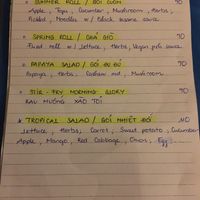 SUMMER ROLL / GỎI CUỐN 90
Apple, Tofu, Cucumber, Mushroom, Herbs,
Pickled, Noodles w/ Black sesame sauce
SPRING ROLL / CHẢ GIÒ 90
Fried roll w/ Lettuce, Herbs, Vegan fish sauce
PAPAYA SALAD / GỎI ĐU ĐỦ 90
Papaya, Herbs, Cashew nut, Mushroom
STIR-FRY MORNING GLORY 90
RAU MUỐNG XÀO TỎI
TROPICAL SALAD / GỎI NHIỆT ĐỚI 90
Lettuce, Herbs, Carrot, Sweet potato, Cucumber
Apple, Mango, Red Cabbage, Onion, Egg